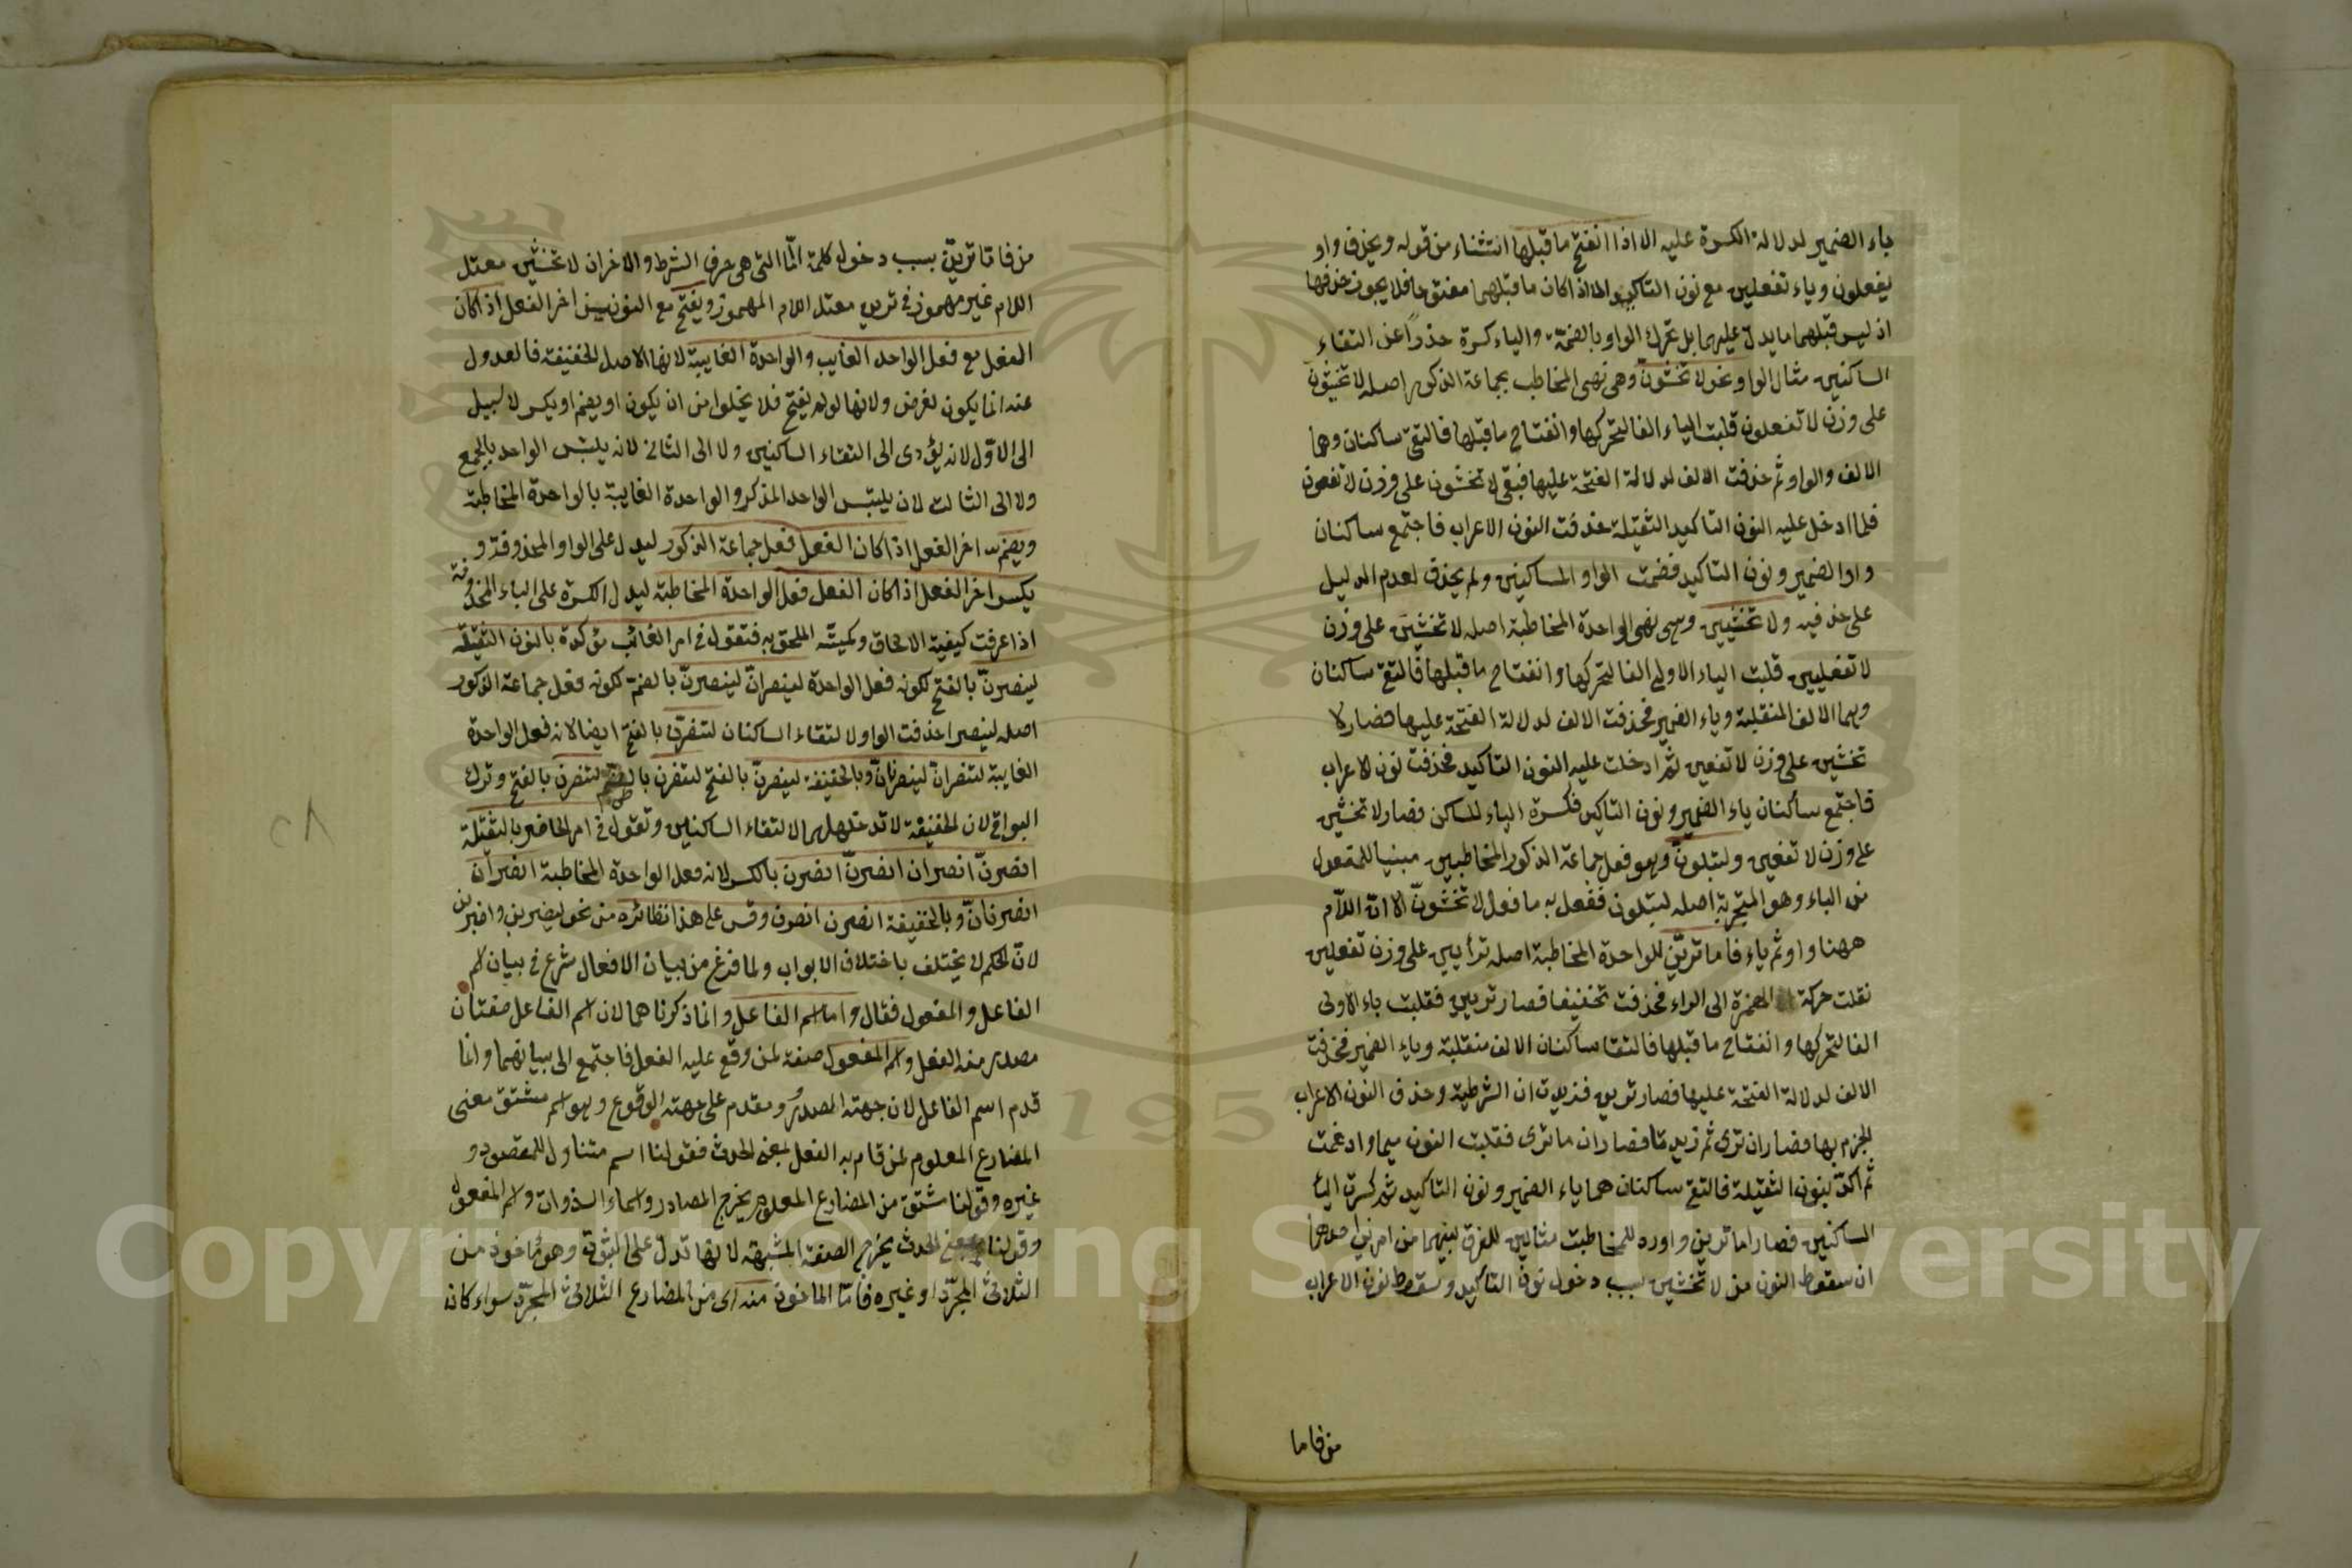 ياء الضمير لدلالة الكسرة عليه الا اذا انفتح ما قبلها استثناء من قوله ويحذف واو
يفعلون وياء تفعلين مع نون التاكيد الا اذا كان ما قبلهما مفتوحا فلا يجوز حذفها
اذ ليس قبلهما ما يدل عليهما بل تحرك الواو بالضمة والياء كسرة حذرا عن التقاء
الساكنين مثال الواو نحو لا تخشون وهى نهى المخاطب بجماعة الذكور اصله لا تخشيون
على وزن لا تفعلون قلبت الياء الفا لتحركها وانفتاح ما قبلها فالتقى ساكنان وهما
الالف والواو ثم حذفت الالف لدلالة الفتحة عليها فبقى لا تخشون على وزن لا تفعون
فلما ادخل عليه النون التاكيد الثقيلة حذفت النون الاعراب فاجتمع ساكنان
واو الضمير ونون التاكيد فضمت الواو الساكنين ولم يحذف لعدم الدليل
على حذفيه ولا تخشين وهى نهى الواحدة المخاطبة اصله لا تخشيين على وزن
لا تفعليين قلبت الياء الاولى الفا لتحركها وانفتاح ما قبلها فالتقى ساكنان
وهما الالف المنقلبة وياء الضمير فحذفت الالف لدلالة الفتحة عليها فصار لا
تخشين على وزن لا تفعين ثم ادخلت عليه النون التاكيد فحذفت نون الاعراب
فاجتمع ساكنان ياء الضمير ونون التاكيد فكسرة الياء للساكن فصار لا تخشين
على وزن لا تفعين ولتبلون وهو فعل جماعة الذكور المخاطبين مبنيا للمفعول
من البلاء وهو التجربة اصله لتبلون ففعل به ما فعل لا تخشون الا ان اللام
ههنا واو ثم ياء فاما ترين للواحدة المخاطبة اصله ترأيين على وزن تفعلين
نقلت حركة الهمزة الى الراء فحذفت تخفيفا فصار تريين فقلبت ياء الاولى
الفا لتحركها وانفتاح ما قبلها فالتقا ساكنان الالف منقلبة وياء الضمير فحذفت
الالف لدلالة الفتحة عليها فصار ترين فزيدت ان الشرطية وحذف النون الاعراب
للجزم بها فصار ان ترى ثم زيد ما فصار ان ما ترى فقلبت النون ميما وادغمت
ثم اكد بنون الثقيلة فالتقى ساكنان هما ياء الضمير ونون التاكيد ثم كسرت الياء
الساكنين فصار اما ترين واورد للمخاطبة مثالين للفرق بينهما من امرين احدهما
ان سقوط النون من لا تخشين بسبب دخول نون التاكيد وسقوط نون الاعراب
من فاما
من فاما ترين بسبب دخول كلمة اما التى هى حرف الشرط والاخر ان لا تخشين معتل
اللام غير مهموز فى ترين معتل اللام المهموز ويفتح مع النونين اخر الفعل اذا كان
الفعل مع فعل الواحد الغايب والواحدة الغايبة لانها الاصل لخفيفة فالعدول
عنه انما يكون لغرض ولانها لو لم يفتح فلا يخلوا من ان يكون او يضم او يكسر لا سبيل
الى الاول لانه يؤدى الى التقاء الساكنين ولا الى الثانى لانه يلتبس الواحد بالجمع
ولا الى الثالث لان يلتبس الواحد المذكر والواحدة الغايبة بالواحدة المخاطبة
ويضم اخر الفعل اذا كان الفعل فعل جماعة الذكور ليدل على الواو المحذوفة و
يكسر اخر الفعل اذا كان الفعل فعل الواحدة المخاطبة ليدل الكسرة على الياء المحذوفة
اذا عرفت كيفية الالحاق وكمية الملحق به فتقول فى امر الغائب مؤكدة بالنون الثقيلة
لينصرن بالفتح لكونه فعل الواحدة لينصران لينصرن بالضمة لكونه فعل جماعة الذكور
اصله لينصرا حذفت الواو لالتقاء الساكنان لتنصرن بالفتح ايضا لانه فعل الواحدة
الغايبة لتنصران لينصرنان وبالخفيفة لينصرن بالفتح لتنصرن بالضم لتنصرن بالفتح وترك
البواقى لان الخفيفة لا تدخلها لالتقاء الساكنين وتقول فى امر الحاضر بالثقيلة
انصرن انصران انصرن انصرن بالكسر لانه فعل الواحدة المخاطبة انصران
انصرنان وبالخفيفة انصرن انصرن وقس على هذا نظائره من نحو ليضربن واضربن
لان الحكم لا يختلف باختلاف الابواب ولما فرغ من بيان الافعال شرع فى بيان اسم
الفاعل والمفعول فقال واما اسم الفاعل وانما ذكرناهما لان اسم الفاعل صفتان
مصدر منه الفعل واسم المفعول صفة لمن وقع عليه الفعل فاجتمع الى بيانهما وانما
قدم اسم الفاعل لان جهته المصدر ومقدم على جهته الوقوع وهو اسم مشتق معنى
المضارع المعلوم لمن قام به الفعل بمعنى الحدث فقولنا اسم متناول للمقصود و
غيره وقولنا مشتق من المضارع المعلوم يخرج المصادر واسماء الذوات واسم المفعول
وقولنا بمعنى الحدث يخرج الصفة المشبهة لانها تدل على الثبوت وهو مأخوذ من
الثلاثى المجرد او غيره فاما الماخوذ منه اى من المضارع الثلاثى المجرد سواء كان
٢٨
Copyright © King Saud University
195